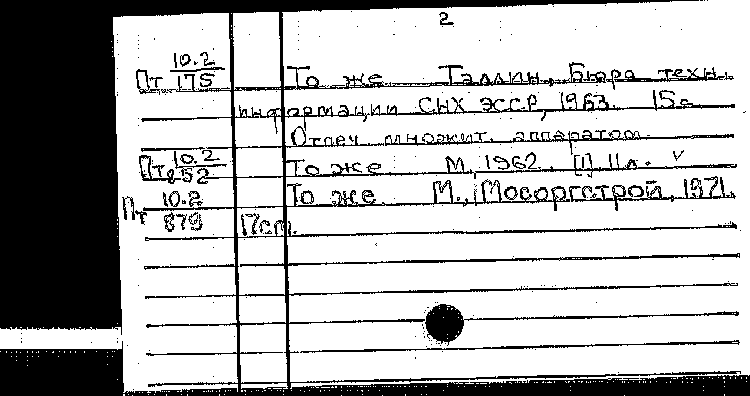 2
Пт 10.2/175 То же Таллин, Бюро техн.
информации СНХ ЭССР, 1963. 15с.
Отпеч. множит. аппаратом.
Пт 10.2/252 То же М., 1962. [1] 11л. v
Пт 10.2/879 То же М., Мосоргстрой, 1971.
17ст.